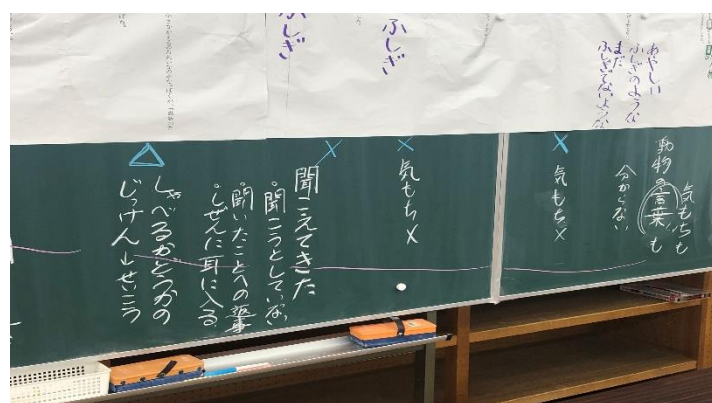 あやしい
ふしぎのような
まだ
ふしぎでないような
ふしぎ
ふしぎ
気もちも
動物の言葉も
分からない
×
気もち×
×
気もち×
×
聞こえてきた
・聞こうとしていない
・聞いたことへの返事
・しぜんに耳に入る
△
しゃべるかどうかの
じっけん→せいこう